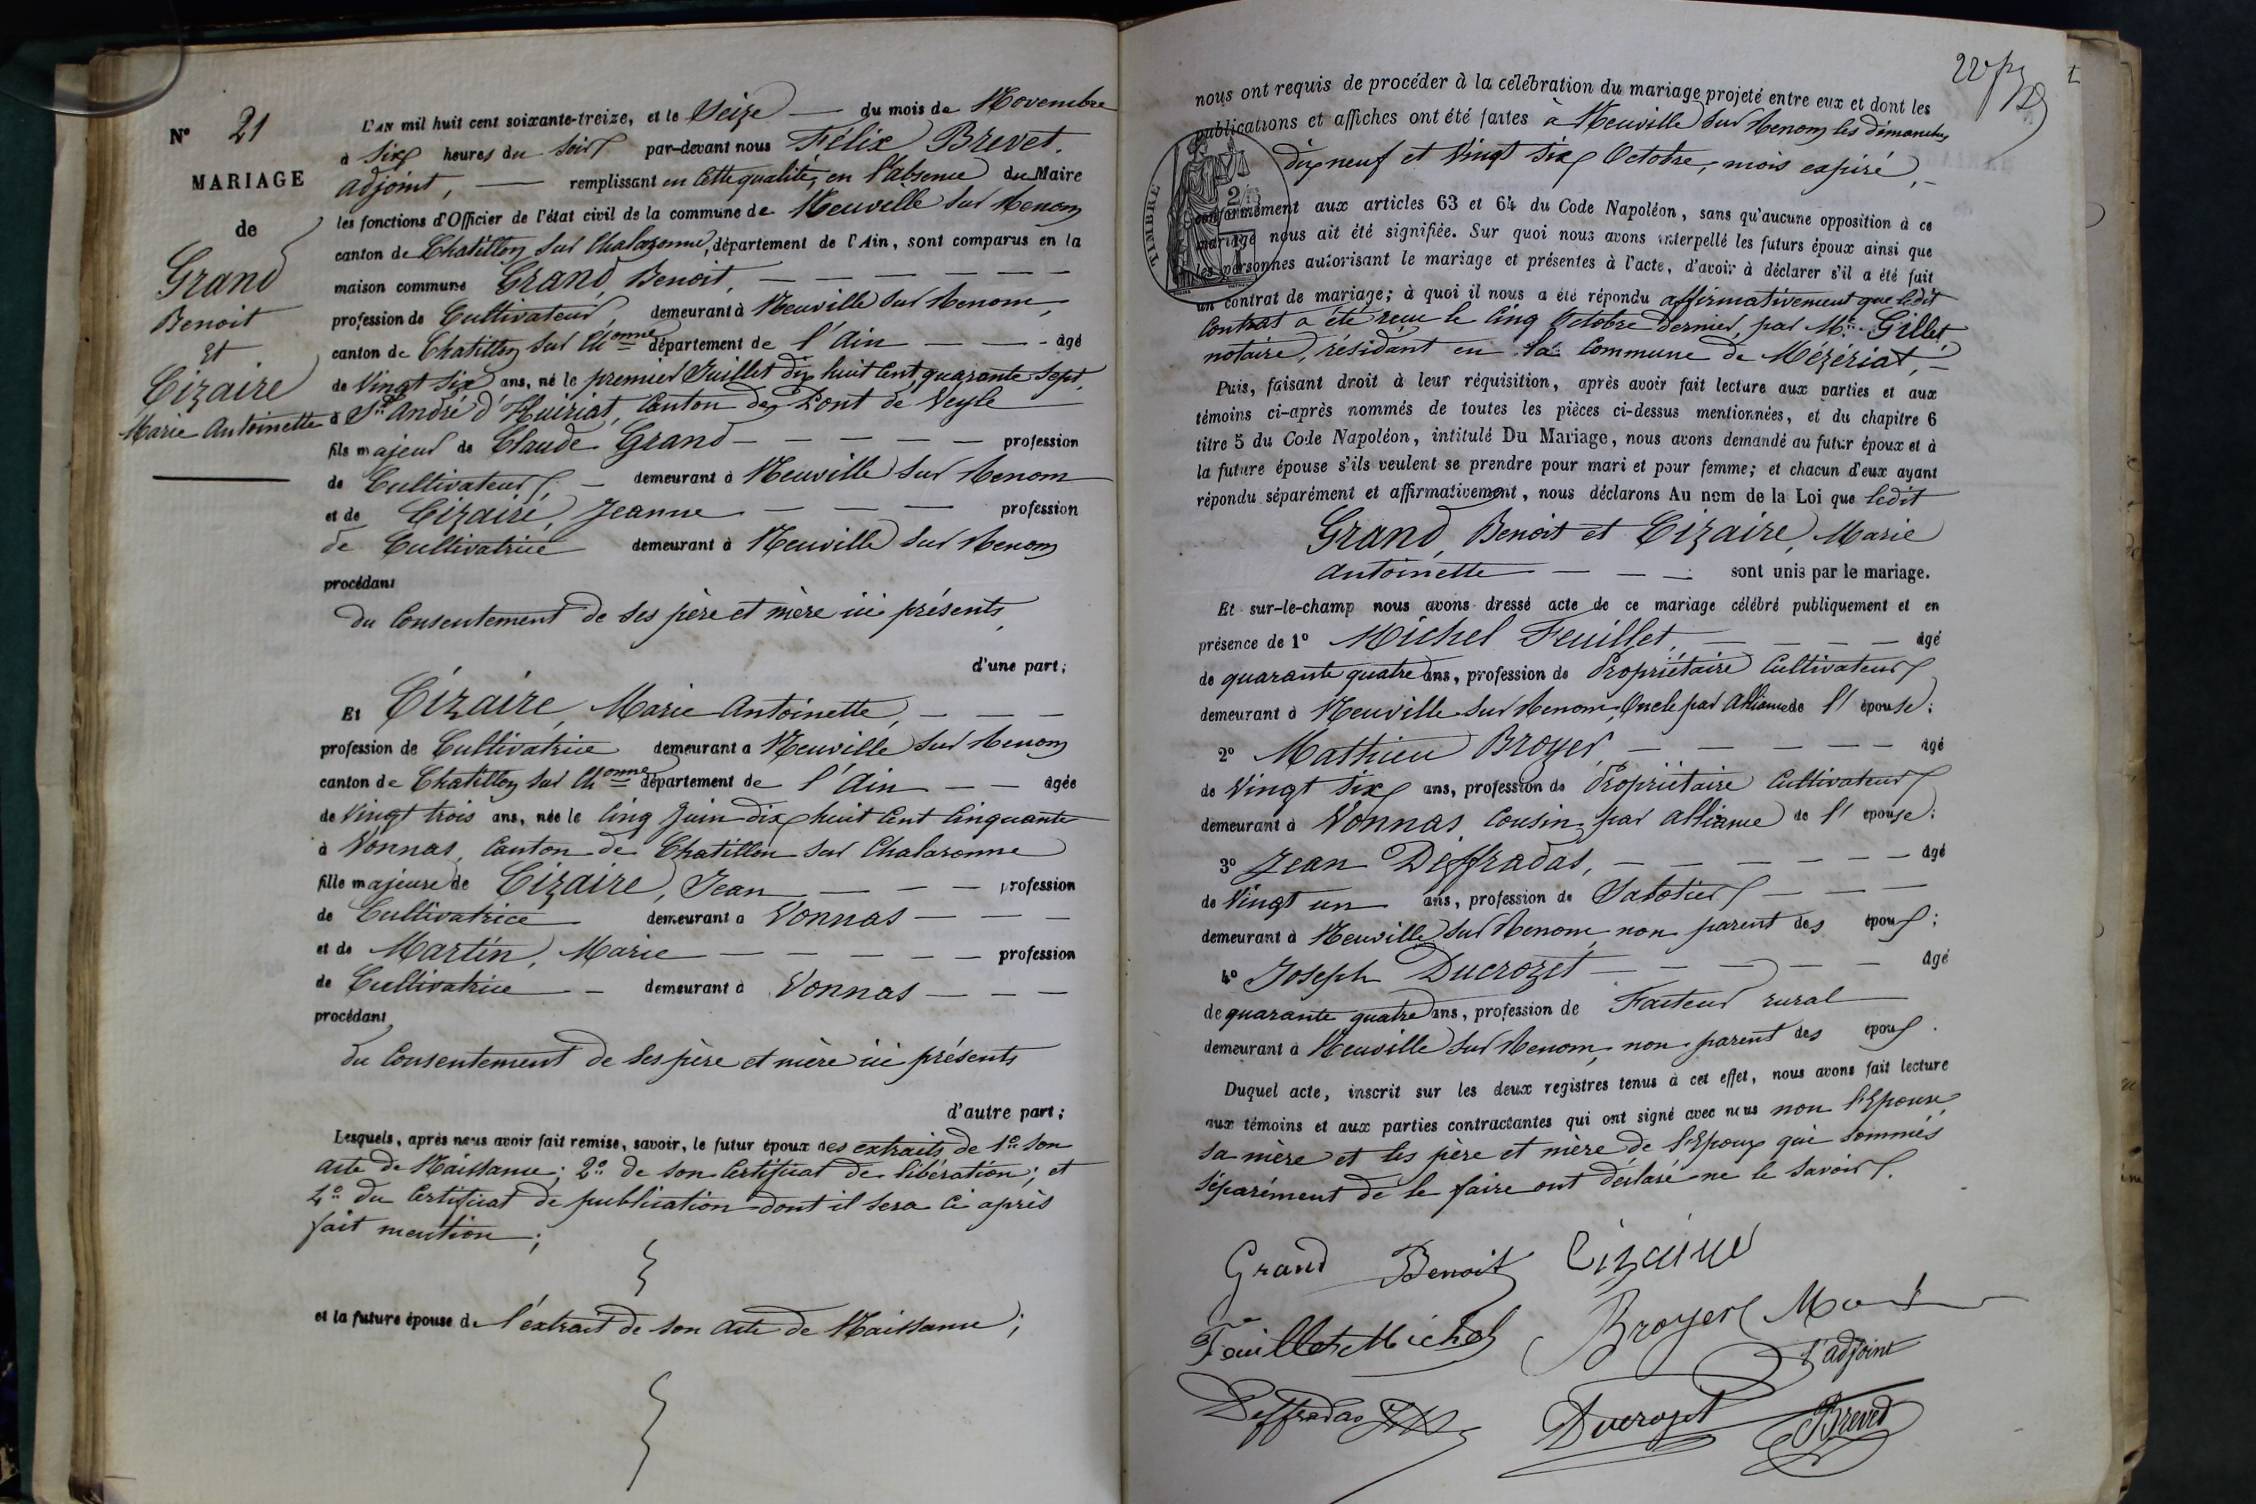 N° 21
MARIAGE
de
Grand
Benoit
Et
Cizaire
Marie Antoinette
L'AN mil huit cent soixante-treize, et le Seize du mois de Novembre
à six heures du soir par-devant nous Félix Brevet,
adjoint, remplissant en cette qualité, en l'absence du Maire
les fonctions d'Officier de l'état civil de la commune de Neuville sur Renom
canton de Chatillon sur Chalaronne, département de l'Ain, sont comparus en la
maison commune Grand, Benoit,
profession de Cultivateur, demeurant à Neuville sur Renom,
canton de Chatillon sur Chonne département de l'Ain - âgé
de Vingt six ans, né le premier Juillet dix huit cent quarante sept,
à St André d'Huiriat, Canton de Pont de Veyle
fils majeur de Claude Grand profession
de Cultivateur, demeurant à Neuville sur Renom
et de Cizaire, Jeanne profession
de Cultivatrice demeurant à Neuville sur Renom
procédant
du Consentement de ses père et mère ici présents,
d'une part;
Et Cizaire, Marie Antoinette,
profession de Cultivatrice demeurant à Neuville sur Renom
canton de Chatillon sur Chonne département de l'Ain - âgée
de Vingt trois ans, née le Cinq Juin dix huit Cent Cinquante
à Vonnas, Canton de Chatillon sur Chalaronne
fille majeure de Cizaire, Jean profession
de Cultivatrice demeurant à Vonnas
et de Martin, Marie profession
de Cultivatrice demeurant à Vonnas
procédant
du Consentement de ses père et mère ici présents
d'autre part;
Lesquels, après nous avoir fait remise, savoir, le futur époux des extraits de 1° son
acte de Naissance; 2° de son Certificat de libération; et
4° du Certificat de publication dont il sera ci après
fait mention;
et la future épouse de l'extrait de son acte de Naissance;
nous ont requis de procéder à la célébration du mariage projeté entre eux et dont les
publications et affiches ont été faites à Neuville sur Renom les dimanches
dix neuf et Vingt six Octobre, mois expiré,
TIMBRE
conformément aux articles 63 et 64 du Code Napoléon, sans qu'aucune opposition à ce
mariage nous ait été signifiée. Sur quoi nous avons interpellé les futurs époux ainsi que
les personnes autorisant le mariage et présentes à l'acte, d'avoir à déclarer s'il a été fait
un contrat de mariage; à quoi il nous a été répondu affirmativement que ledit
Contrat a été reçu le Cinq Octobre dernier, par Me Gillet,
notaire, résidant en la Commune de Mézériat,
Puis, faisant droit à leur réquisition, après avoir fait lecture aux parties et aux
témoins ci-après nommés de toutes les pièces ci-dessus mentionnées, et du chapitre 6
titre 5 du Code Napoléon, intitulé Du Mariage, nous avons demandé au futur époux et à
la future épouse s'ils veulent se prendre pour mari et pour femme; et chacun d'eux ayant
répondu séparément et affirmativement, nous déclarons Au nom de la Loi que ledit
Grand, Benoit et Cizaire, Marie
Antoinette sont unis par le mariage.
Et sur-le-champ nous avons dressé acte de ce mariage célébré publiquement et en
présence de 1° Michel Feuillet, âgé
de quarante quatre ans, profession de Propriétaire Cultivateur
demeurant à Neuville sur Renom, Oncle par Alliance de l'épouse;
2° Mathieu Broyer, âgé
de Vingt six ans, profession de Propriétaire Cultivateur
demeurant à Vonnas, Cousin par alliance de l'épouse;
3° Jean Deffradas, âgé
de Vingt un ans, profession de Sabotier
demeurant à Neuville sur Renom, non parent des époux;
4° Joseph Ducrozet âgé
de quarante quatre ans, profession de Facteur rural
demeurant à Neuville sur Renom, non parent des époux.
Duquel acte, inscrit sur les deux registres tenus à cet effet, nous avons fait lecture
aux témoins et aux parties contractantes qui ont signé avec nous non l'Epouse,
sa mère et les père et mère de l'Epoux qui sommés
séparément de le faire ont déclaré ne le savoir.
Grand Benoit Cizaire
Feuillet Michel Broyer
l'adjoint
Deffradas Ducrozet Brevet